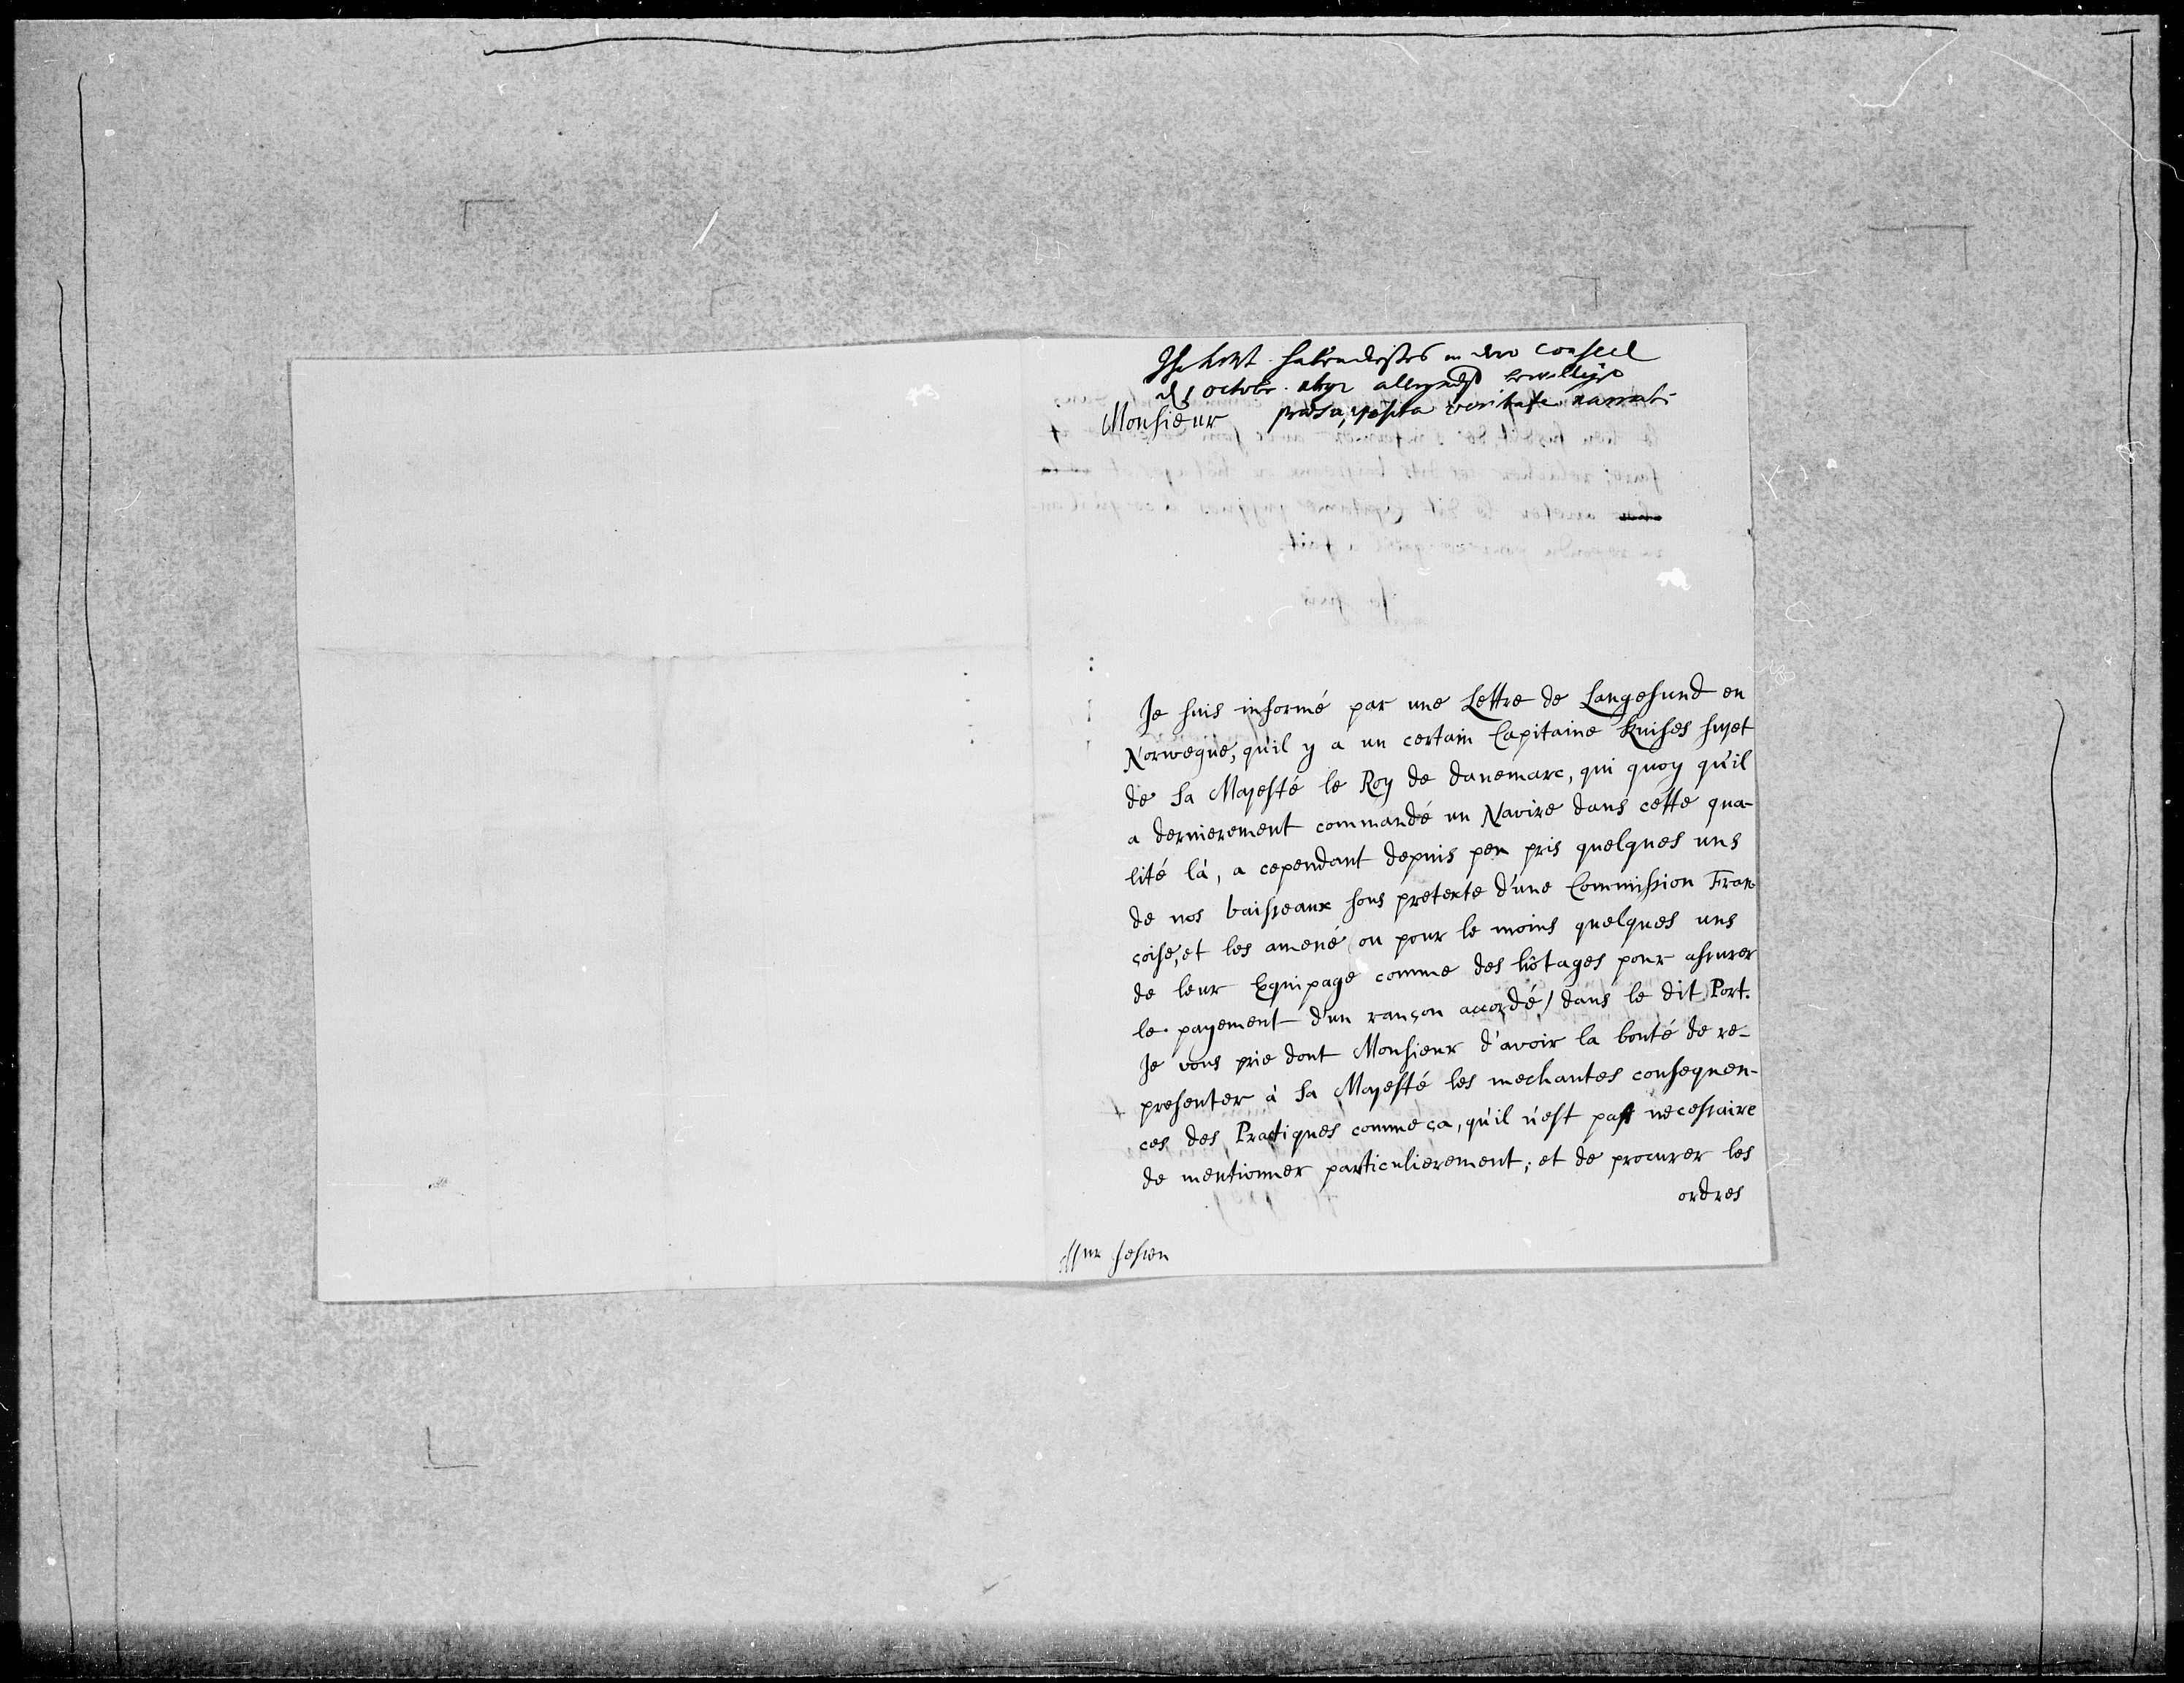 in dem Conseil
d 1 octobr. allergnedigst bewilliget
Monsieur præsupposita veritate narrati
Je suis informé par une Lettre de Langesund en
Norwegue, qu'il y a un certain Capitaine Knises sujet
de Sa Majesté le Roy de Danemarc, qui quoy qu'il
a dernierement commandé un Navire dans cette qua-
lité là, a cependant depuis peu pris quelques uns
de nos Vaisseaux sous pretexte d'une Commission Fran-
çoise, et les amené (ou pour le moins quelques uns
de leur Equipage comme des hôtages pour assurer
le payement d'un rançon accordé) dans le dit Port.
Je vous prie dont Monsieur d'avoir la bonté de re-
presenter à Sa Majesté les mechantes consequen-
ces des Practiques comme ça, qu'il n'est past necessaire
de mentionner particulierement, et de procurer les
ordres
Mr Jessen